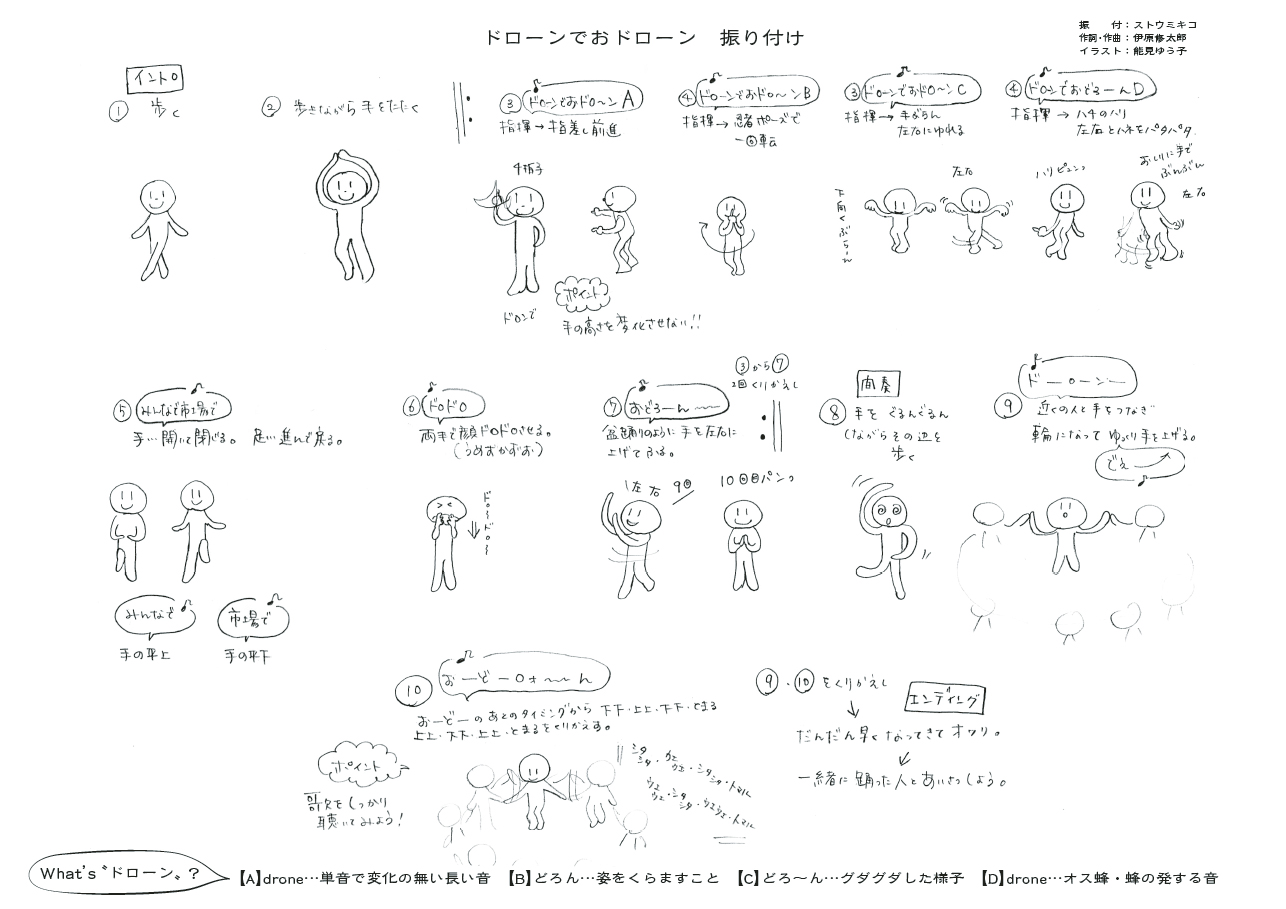 ドローンでおドローン 振り付け
振 付：ストウミキコ
作詞・作曲：伊原修太郎
イラスト：能見ゆう子
イントロ
① 歩く
② 歩きながら手をたたく
③ ドローンでおドロ〜ンA
指揮→指差し前進
4拍子
ドロンで
ポイント
手の高さを変化させない!!
④ ドローンでおドロ〜ンB
指揮→忍者ポーズで
一回転
③ ドローンでおドロ〜ンC
指揮→手だらん
左右にゆれる
下向くぶらーん
左右
④ ドローンでおどろーんD
指揮→ハチのハリ
左右とハネをパタパタ
ハリピュンっ
おしりに手で
ぶんぶん
左右
⑤ みんなで市場で
手…開いて閉じる。 足…進んで戻る。
みんなで
手の平上
市場で
手の平下
⑥ ドロドロ
両手で顔ドロドロさせる。
(うめずかずお)
ドロ〜ドロ〜
⑦ おどろーん〜〜
盆踊りのように手を左右に
上げてふる。
左右 9回
10回目パンっ
③から⑦
2回くりかえし
間奏
⑧ 手をぐるんぐるん
しながらその辺を
歩く
⑨ ドーローンー
近くの人と手をつなぎ
輪になってゆっくり手を上げる。
でぇ
⑩ おーどーロォ〜〜ん
おーどーのあとのタイミングから 下下・上上・下下・とまる
上上・下下・上上・とまるをくりかえす。
ポイント
歌をしっかり
聴いてみよう!
シタシタ・ウエウエ・シタシタ・トマル
ウエウエ・シタシタ・ウエウエ・トマル
⑨・⑩をくりかえし
エンディング
だんだん早くなってきてオワリ。
一緒に踊った人とあいさつしよう。
What's〝ドローン〟?
【A】drone…単音で変化の無い長い音 【B】どろん…姿をくらますこと 【C】どろ〜ん…グダグダした様子 【D】drone…オス蜂・蜂の発する音